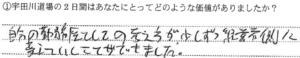 ①宇田川道場の2日間はあなたにとってどのような価値がありましたか?
自分の勤務医としての考え方が少しずつ経営者側に
変えていくことができました。